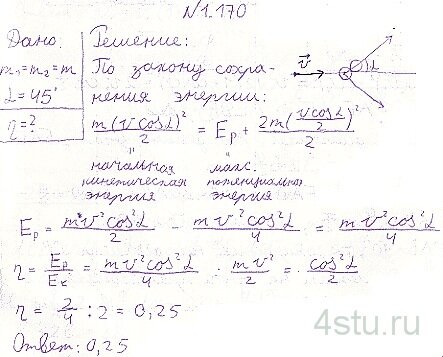 №1.170
Дано: Решение:
m₁=m₂=m По закону сохра-
α=45° нения энергии:
η=?
m(v cosα)²/2 = Eₚ + 2m(v cosα/2)²/2
"начальная кинетическая энергия
"макс. потенциальная энергия
v⃗ α
Eₚ = mv²cos²α/2 - mv²cos²α/4 = mv²cos²α/4
η = Eₚ/Eₖ = mv²cos²α/4 : mv²/2 = cos²α/2
η = 2/4 : 2 = 0,25
Ответ: 0,25
4stu.ru